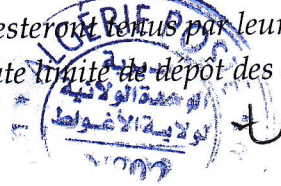 esteront tenus par leur
ate limite de dépôt des
ALGÉRIE POS
الوحدة الولائية
لولاية الأغواط